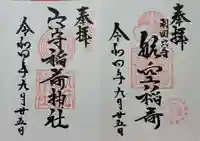 奉拝
羽田
航空稲荷
令和四年九月廿五日
奉拝
穴守稲荷神社
令和四年九月廿五日